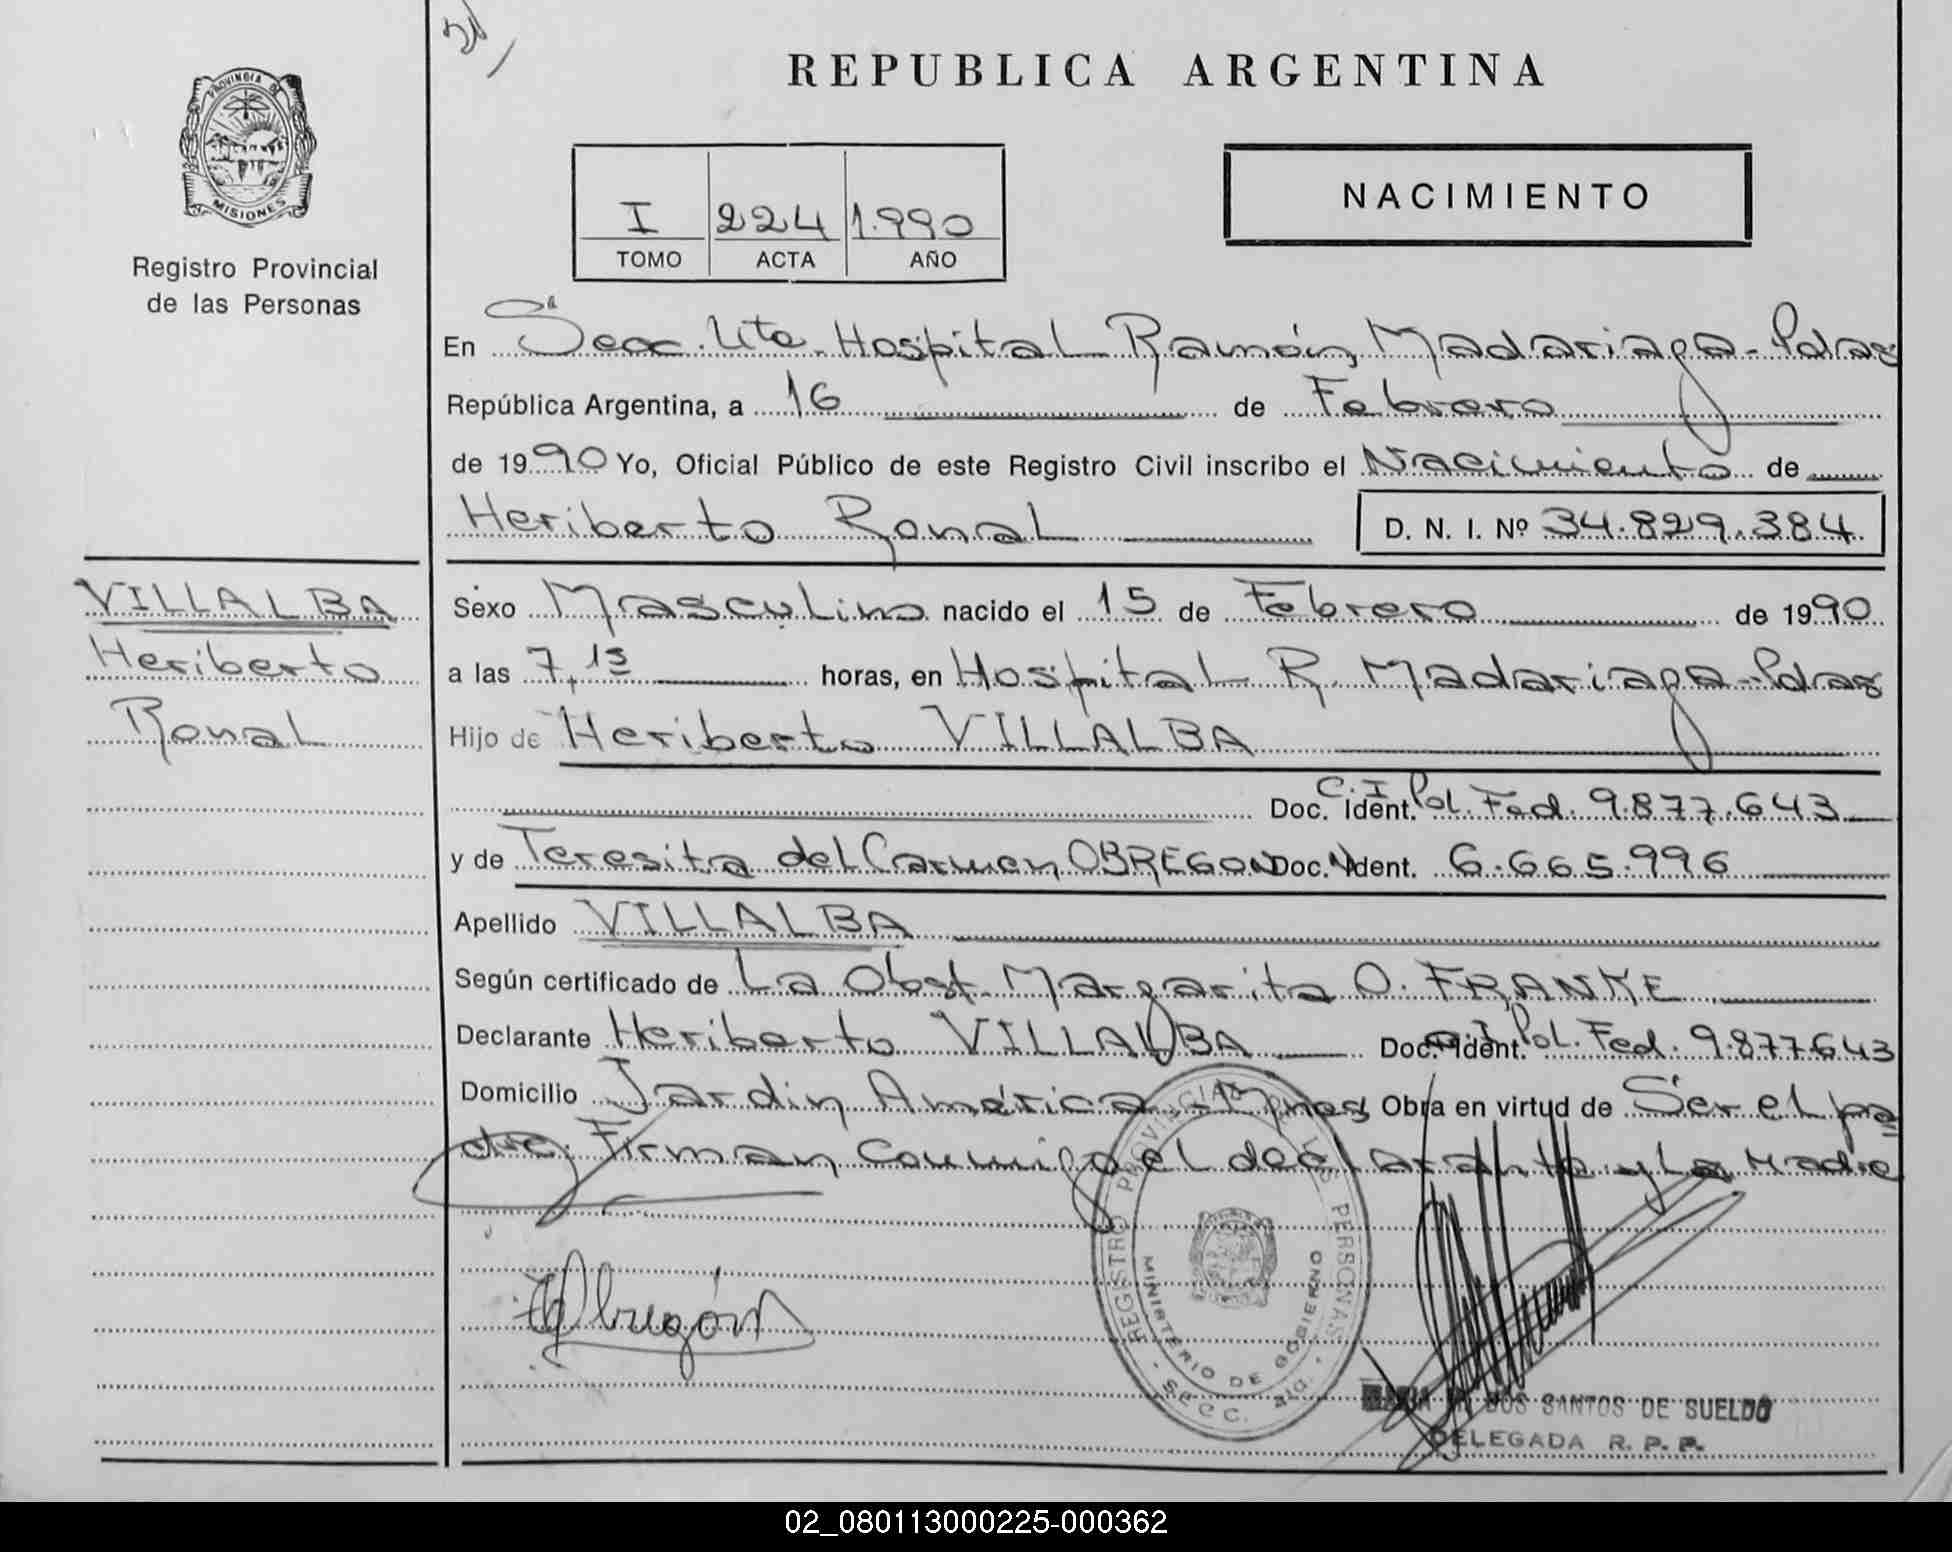 REPUBLICA ARGENTINA
PROVINCIA DE MISIONES
Registro Provincial
de las Personas
I 224 1.990
TOMO ACTA AÑO
NACIMIENTO
En Secc. 4ta. Hospital Ramón Madariaga - Pdas
República Argentina, a 16 de Febrero
de 1990 Yo, Oficial Público de este Registro Civil inscribo el Nacimiento de
Heriberto Ronal D. N. I. Nº 34.829.384
VILLALBA
Heriberto
Ronal
Sexo Masculino nacido el 15 de Febrero de 1990
a las 7,15 horas, en Hospital R. Madariaga - Pdas
Hijo de Heriberto VILLALBA
Doc. Ident. C.I. Pol. Fed. 9.877.643
y de Teresita del Carmen OBREGON Doc. Ident. 6.665.996
Apellido VILLALBA
Según certificado de La Obst. Margarita O. FRANKE
Declarante Heriberto VILLALBA Doc. Ident. C.I. Pol. Fed. 9.877643
Domicilio Jardin América - Mnes Obra en virtud de Ser el pa
dre; Firman conmigo el declarante y la Madre
Obregón
REGISTRO PROVINCIAL DE LAS PERSONAS
MINISTERIO DE GOBIERNO
SECC. 4ta.
DOS SANTOS DE SUELDO
DELEGADA R. P. P.
02_080113000225-000362